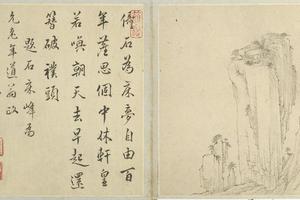 石為床夢自由百
年思個中休軒皇
若喚朝天去早起還
簪破襆頭
題石床峰為
年道翁政